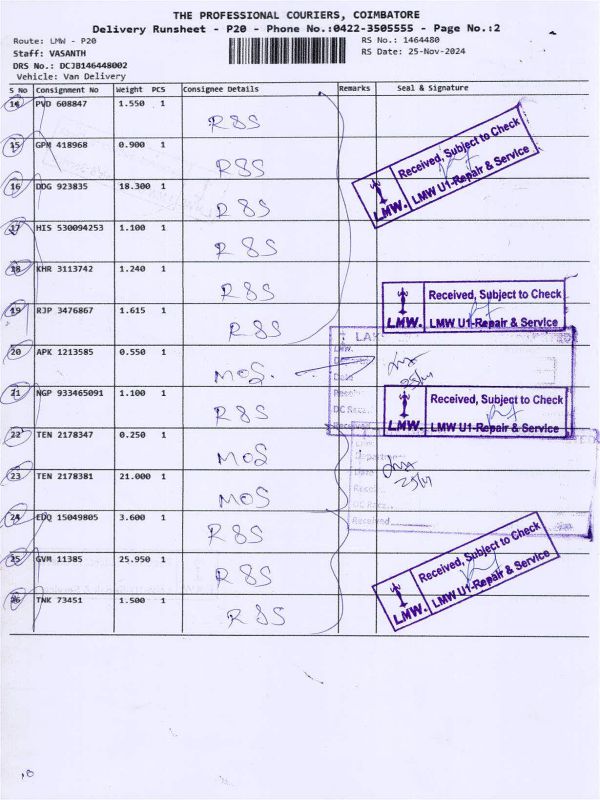 THE PROFESSIONAL COURIERS, COIMBATORE
Delivery Runsheet - P20 - Phone No.:0422-3505555 - Page No.:2
Route: LMW - P20 RS No.: 1464480
Staff: VASANTH RS Date: 25-Nov-2024
DRS No.: DCJB146448002
Vehicle: Van Delivery
S No Consignment No Weight PCS Consignee Details Remarks Seal & Signature
14 PVD 608847 1.550 1 R&S
15 GPM 418968 0.900 1 R&S
Received, Subject to Check
LMW. LMW U1-Repair & Service
16 DDG 923835 18.300 1 R&S
17 HIS 530094253 1.100 1 R&S
18 KHR 3113742 1.240 1 R&S
Received, Subject to Check
LMW. LMW U1-Repair & Service
19 RJP 3476867 1.615 1 R&S
20 APK 1213585 0.550 1 MOS. 25/11
21 NGP 933465091 1.100 1 R&S
Received, Subject to Check
LMW. LMW U1-Repair & Service
22 TEN 2178347 0.250 1 MOS
23 TEN 2178381 21.000 1 MOS 25/11
24 EDQ 15049805 3.600 1 R&S
25 GVM 11385 25.950 1 R&S
Received, Subject to Check
LMW. LMW U1-Repair & Service
26 TNK 73451 1.500 1 R&S